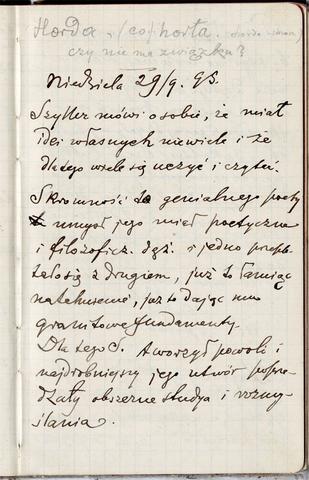 Horda, /(co)horta.
czy nie ma związku?
Niedziela 29/9. 95.
Szyller mówi o sobie, że miał
idei własnych niewiele i że
dlatego wiele się uczył i czytał.
Skromność to genialnego poety
umysł jego miał poetyczne
i filozoficz. dąż. i jedno
się z drugiem, już to łamiąc
natchnienie, już to dając mu
granitowe fundamenty.
Dlatego S. tworzył powoli i
najdrobniejszy jego utwór poprze-
dzały obszerne studya i rozmy-
ślania.